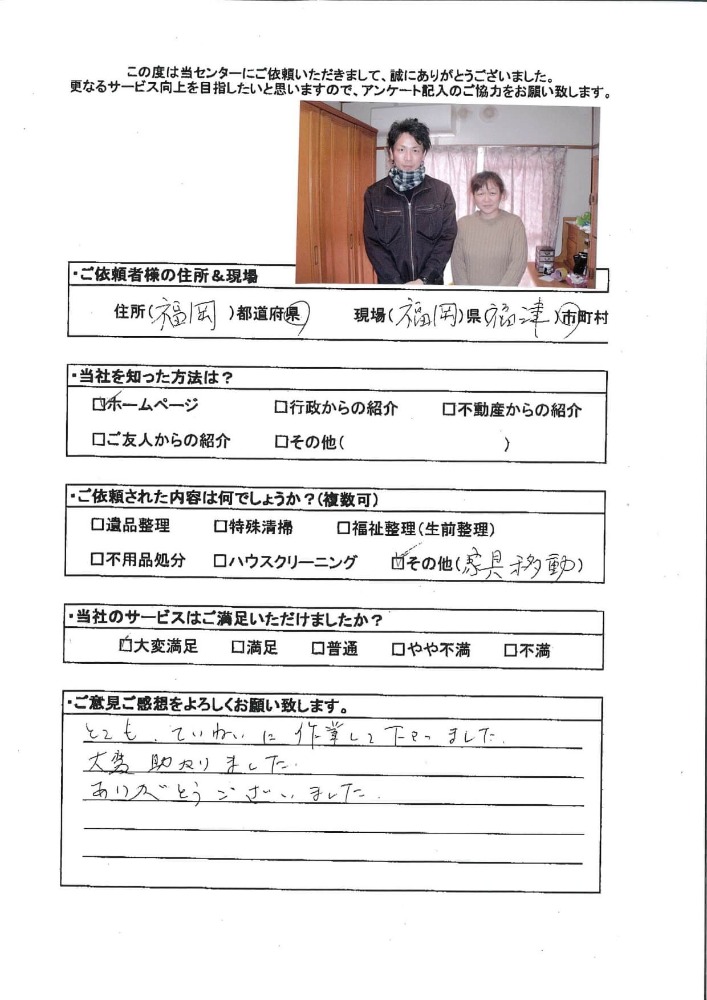 この度は当センターにご依頼いただきまして、誠にありがとうございました。
更なるサービス向上を目指したいと思いますので、アンケート記入のご協力をお願い致します。
・ご依頼者様の住所＆現場
住所(福岡)都道府県 現場(福岡)県(福津)市町村
・当社を知った方法は？
☑ホームページ □行政からの紹介 □不動産からの紹介
□ご友人からの紹介 □その他( )
・ご依頼された内容は何でしょうか？(複数可)
□遺品整理 □特殊清掃 □福祉整理(生前整理)
□不用品処分 □ハウスクリーニング ☑その他(家具移動)
・当社のサービスはご満足いただけましたか？
☑大変満足 □満足 □普通 □やや不満 □不満
・ご意見ご感想をよろしくお願い致します。
とても、ていねいに作業して下さいました.
大変助かりました.
ありがとうございました.